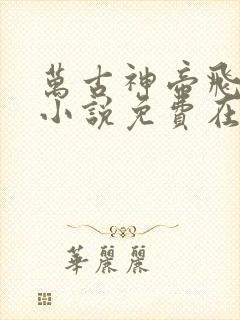 萬古神帝飛
小說免費在
華麗麗